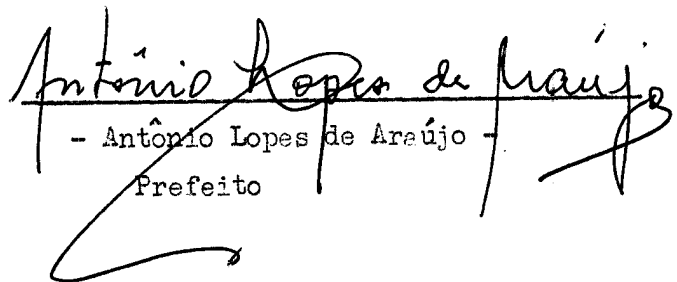 Antônio Lopes de Araújo
- Antônio Lopes de Araújo -
Prefeito